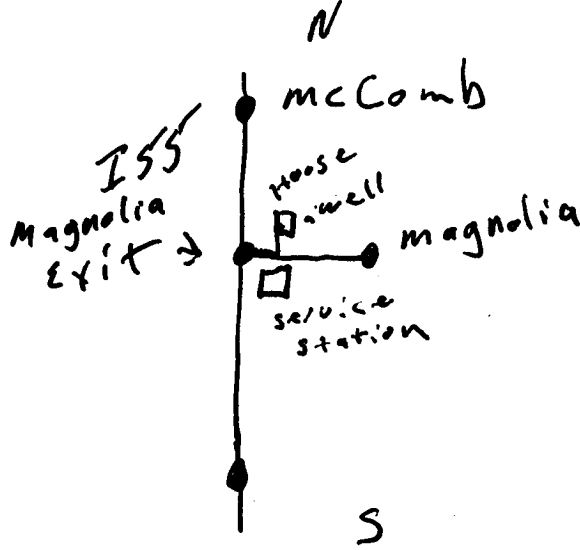 N
McComb
I55
House
well
Magnolia
Exit
magnolia
service
station
S